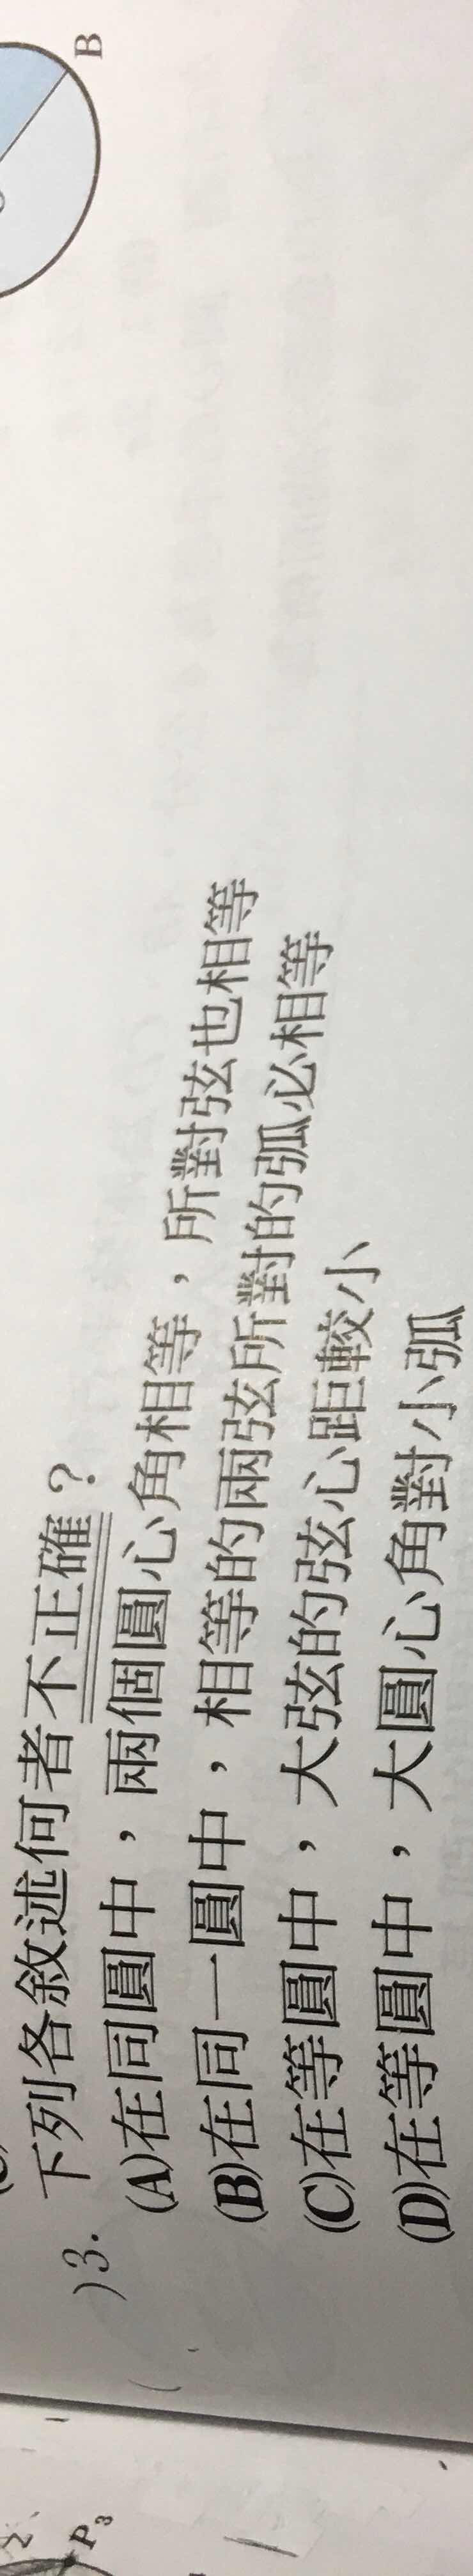 B
)3. 下列各敘述何者不正確？
(A)在同圓中，兩個圓心角相等，所對弦也相等
(B)在同一圓中，相等的兩弦所對的弧必相等
(C)在等圓中，大弦的弦心距較小
(D)在等圓中，大圓心角對小弧
2
P3